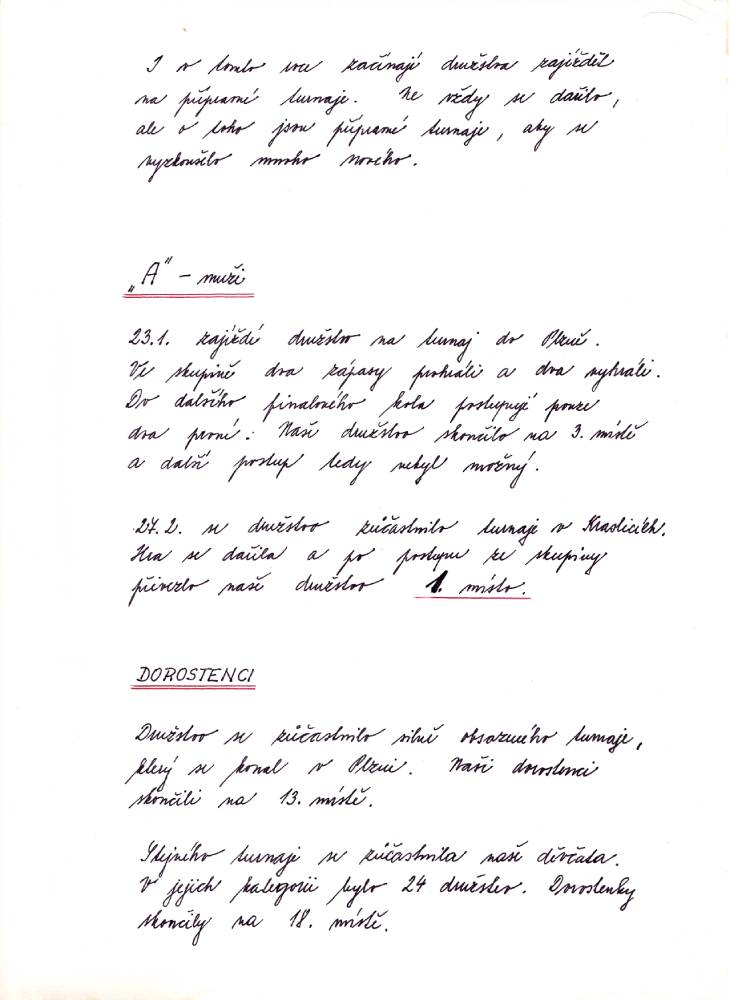 I v tomto roce začínají družstva zajíždět
na přípravné turnaje. Ne vždy se dařilo,
ale o toho jsou přípravné turnaje, aby se
vyzkoušelo mnoho nového.
„A" - muži
23.1. zajíždí družstvo na turnaj do Plzně.
Ve skupině dva zápasy prohráli a dva vyhráli.
Do dalšího finalového kola postupují pouze
dva první. Naše družstvo skončilo na 3. místě
a další postup tedy nebyl možný.
27.2. se družstvo zúčastnilo turnaje v Kraslicích.
Hra se dařila a po postupu ze skupiny
přivezlo naše družstvo 1. místo.
DOROSTENCI
Družstvo se zúčastnilo silně obsazeného turnaje,
který se konal v Plzni. Naši dorostenci
skončili na 13. místě.
Stejného turnaje se zúčastnila naše děvčata.
V jejich kategorii bylo 24 družstev. Dorostenky
skončily na 18. místě.